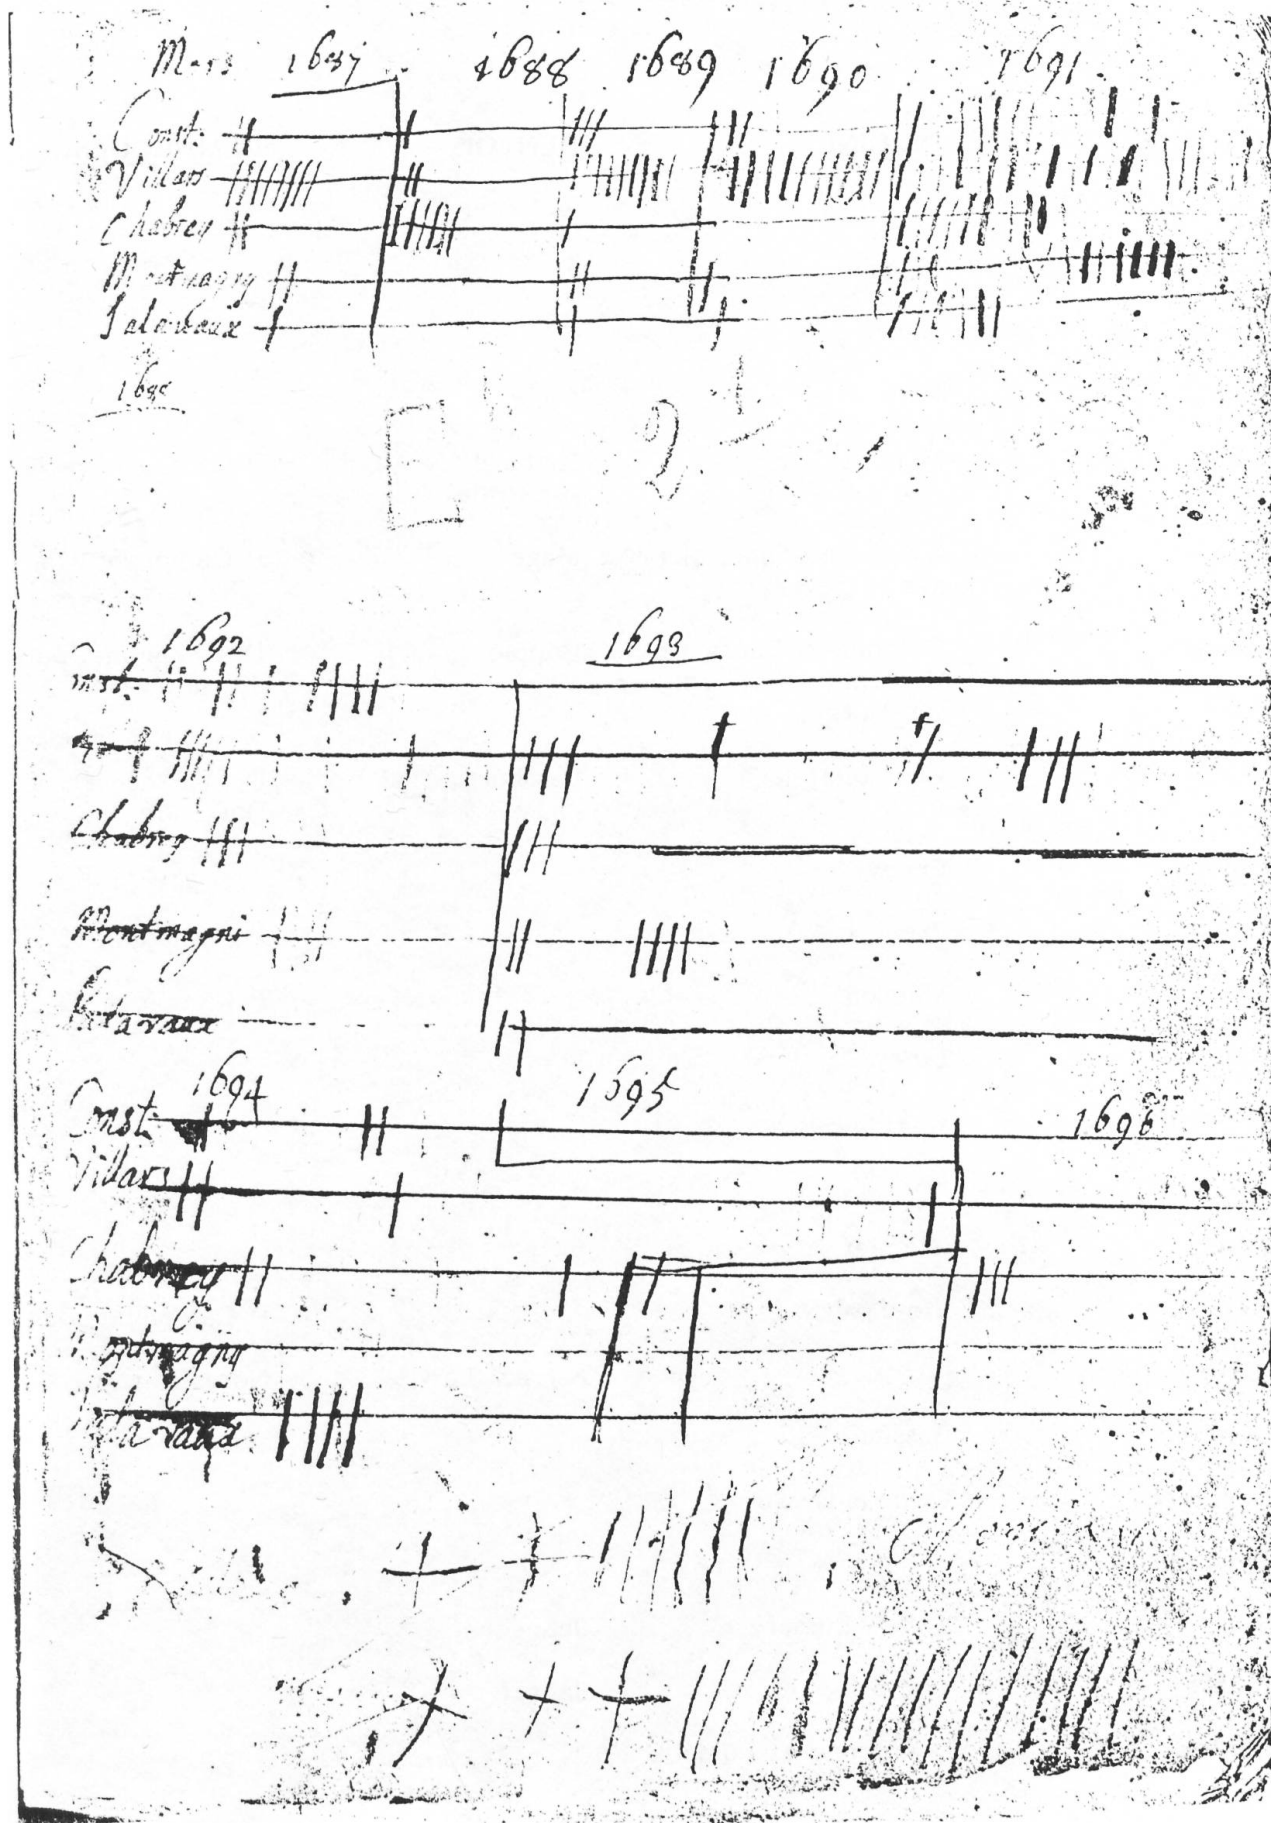 Mars 1687 1688 1689 1690 1691
Const:
Villars
Chabrey
Montmagny
Salavaux
1688
E 2
1692 1693
Const:
Chabrey
Montmagni
Salavaux
1694 1695 1696
Const:
Villars
Chabrey
Montmagny